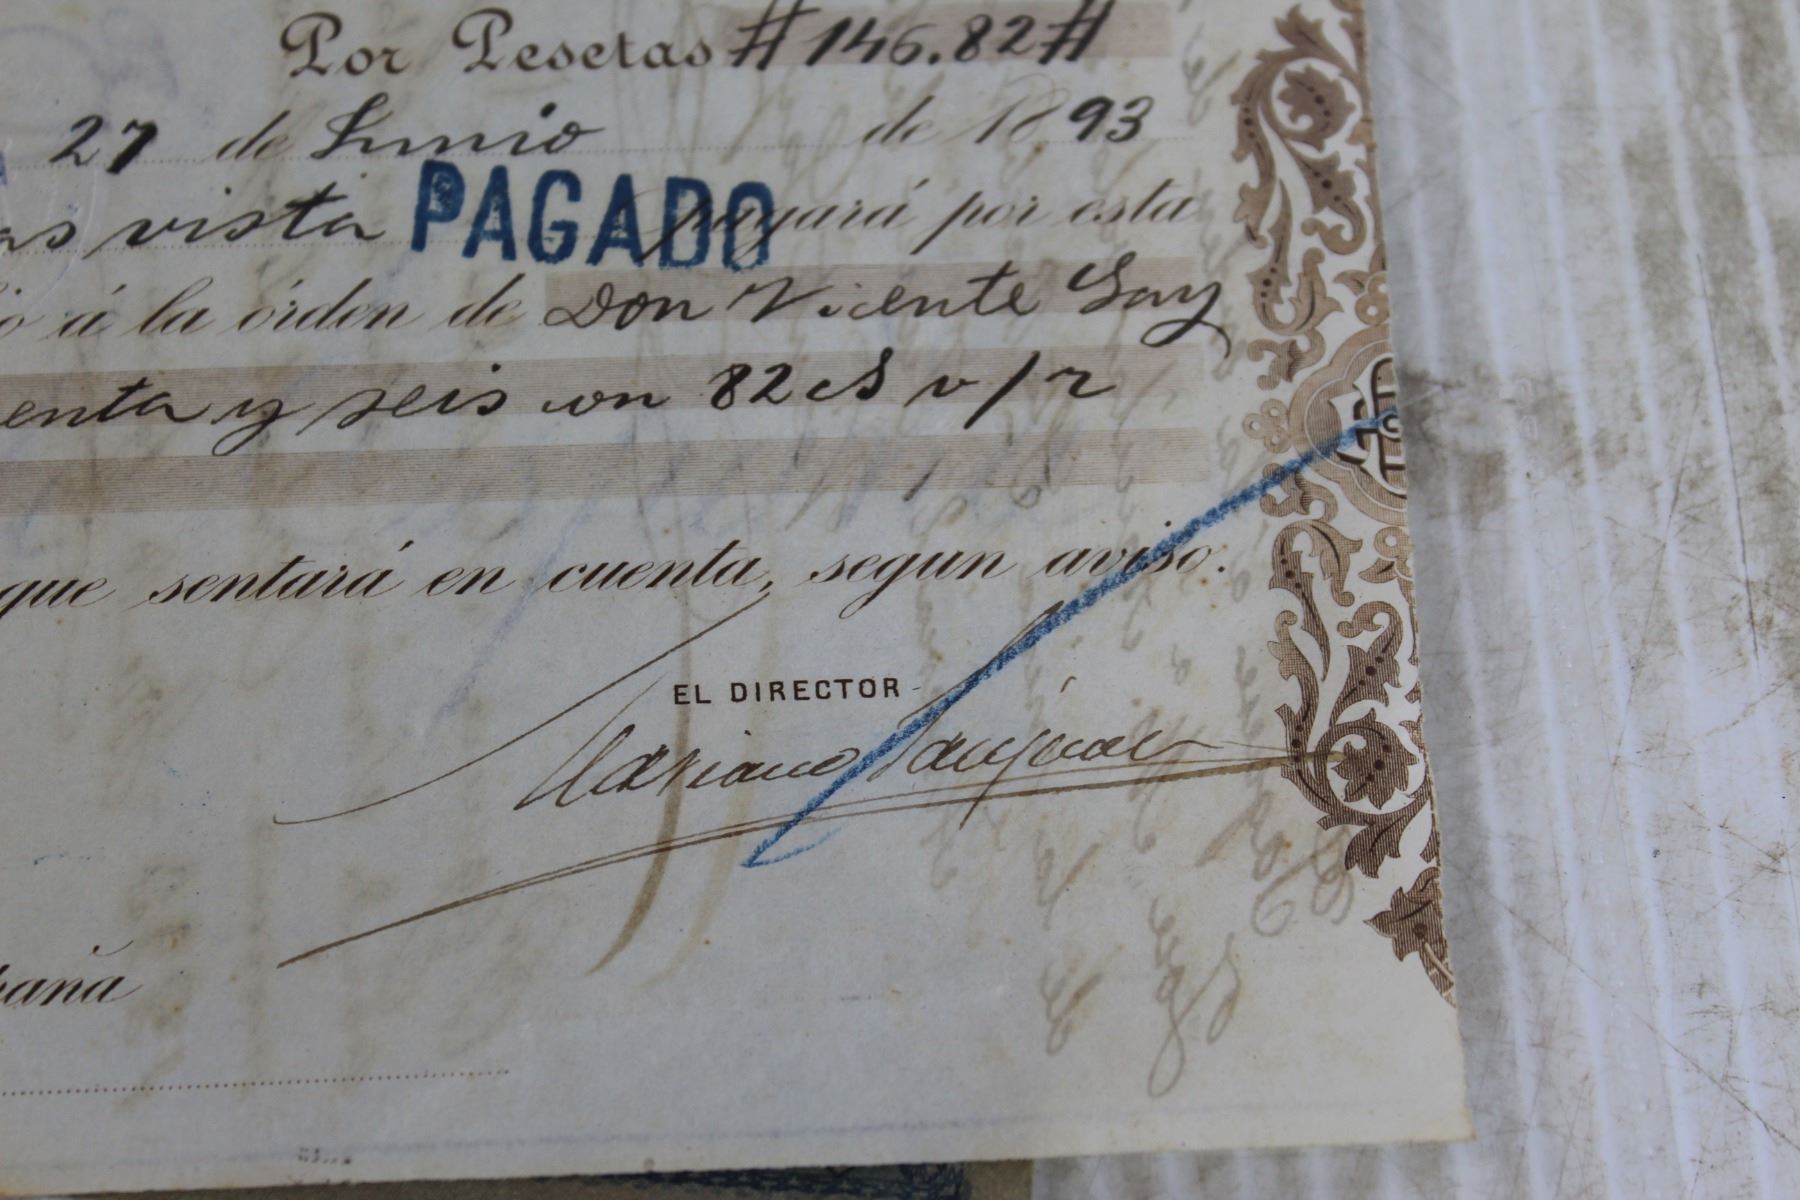 Por Pesetas # 146.82 #
27 de Junio de 1893
vista PAGADO pagará por esta
á la órden de Don Vicente Gay
enta y seis con 82 cs v/r
que sentará en cuenta, segun aviso.
EL DIRECTOR
Mariano